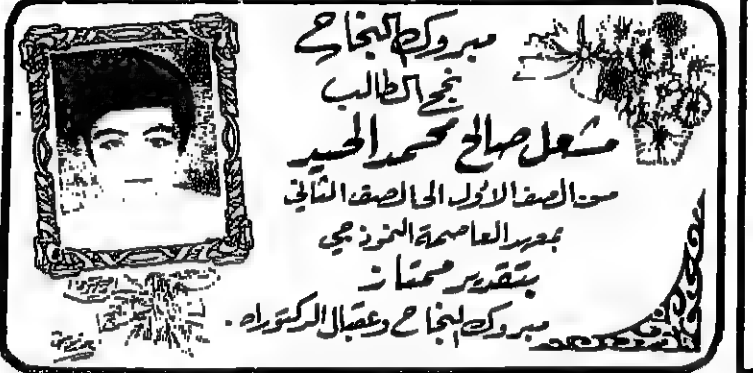 مبروك النجاح
نجح الطالب
مشعل صالح محمد الحيد
من الصف الأول الى الصف الثاني
بمعهد العاصمة النموذجي
بتقدير ممتاز
مبروك النجاح وعقبال الدكتوراه .